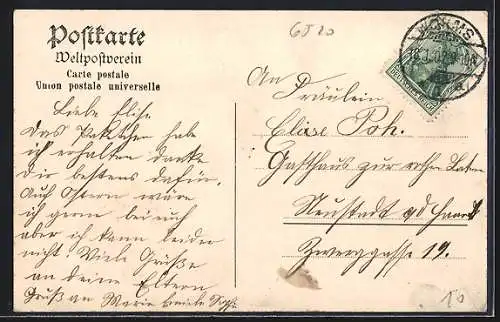 Postkarte
Weltpostverein
Carte postale
Union postale universelle
6520
WORMS
DEUTSCHES REICH
Liebe Elise
Das Päkchen habe
ich erhalten danke
Dir bestens dafür.
Auf Ostern wäre
ich gerne bei euch
aber ich kann leider
nicht. Viele Grüße
an deine Eltern
Gruß an Marie
An
Fräulein
Elise Poh.
Gasthaus zur rothen Latern
Neustadt a/d Haardt
Zwerggasse 19.
10